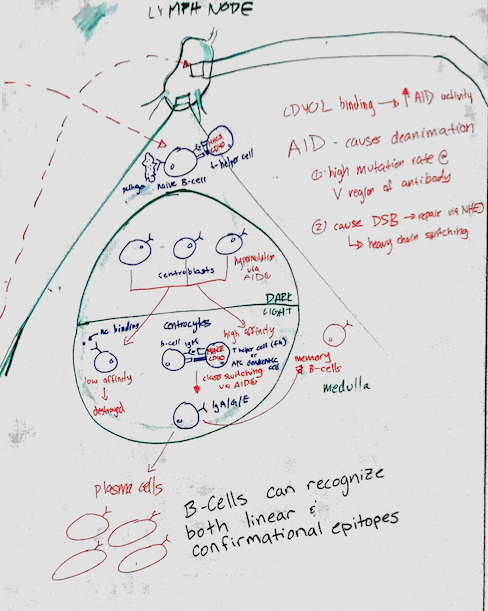 LYMPH NODE
CD40L binding → ↑ AID activity
AID - causes deanimation
① high mutation rate @
V region of antibody
② cause DSB → repair via NHEJ
↳ heavy chain switching
MHCII
CD40
T-helper cell
naive B-cell
centroblasts
hypermutation
via
AID
DARK
LIGHT
no binding
centrocytes
high affinity
B-cell IgM
MHCII
CD40
T helper cell (fh)
or
APC dendritic
cell
low affinity
destroyed
class switching
via AID
IgA/G/E
memory
B-cells
medulla
plasma cells
B-Cells can recognize
both linear &
confirmational epitopes